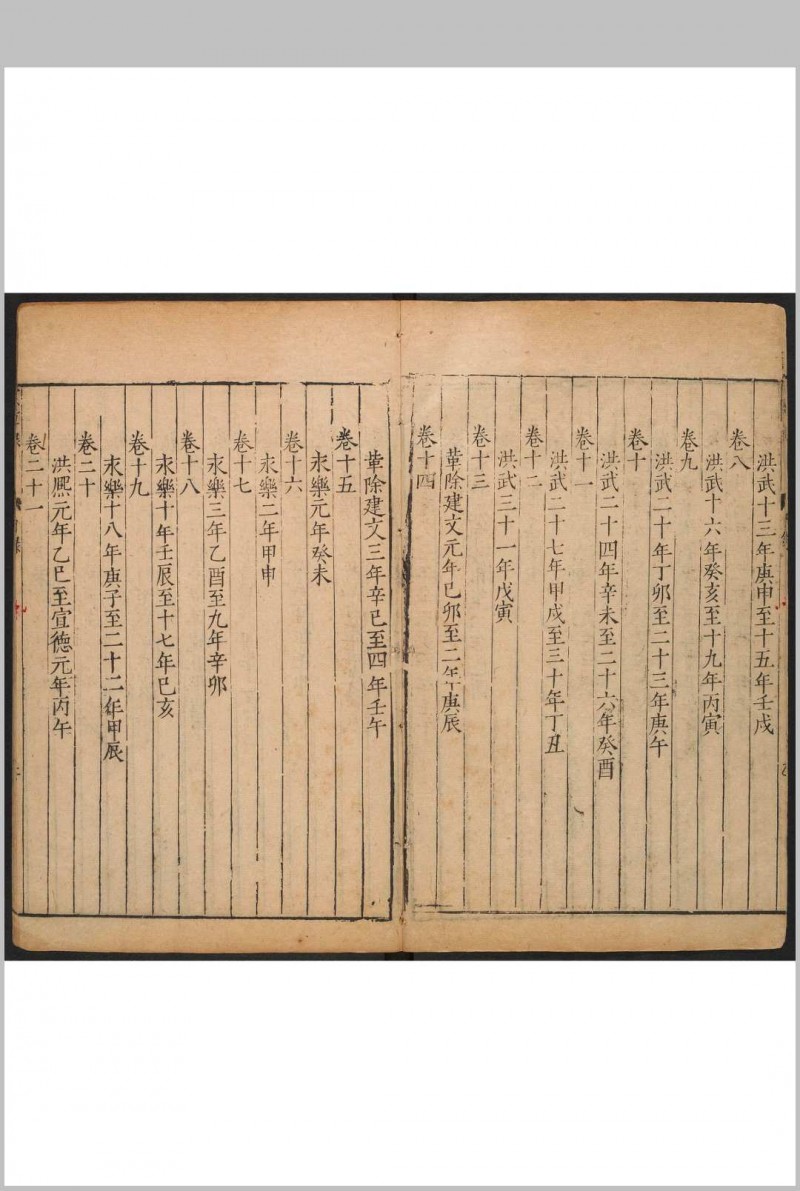 洪武十三年庚申至十五年壬戌
卷八
洪武十六年癸亥至十九年丙寅
卷九
洪武二十年丁卯至二十三年庚午
卷十
洪武二十四年辛未至二十六年癸酉
卷十一
洪武二十七年甲戌至三十年丁丑
卷十二
洪武三十一年戊寅
卷十三
革除建文元年己卯至二年庚辰
卷十四
革除建文三年辛巳至四年壬午
卷十五
永樂元年癸未
卷十六
永樂二年甲申
卷十七
永樂三年乙酉至九年辛卯
卷十八
永樂十年壬辰至十七年己亥
卷十九
永樂十八年庚子至二十二年甲辰
卷二十
洪熙元年乙巳至宣德元年丙午
卷二十一